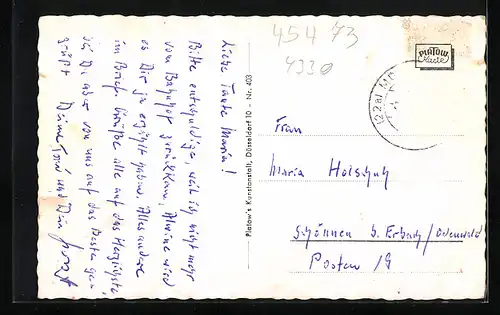 454 73
4330
PLATOW
Karte
12.2.81
Liebe Tante Maria!
Bitte entschuldige, weil ich nicht mehr
vom Bahnhof zurückkam, Alwine wird
es Dir ja erzählt haben. Alles andere
im Brief. Grüße alle auf das Herzlichste
sei Du aber von uns auf das Beste ge
grüßt Deine und Dein Horst
Platow's Kunstanstalt, Düsseldorf 10 - Nr. 403
Frau
Maria Holschuh
Schönnen b. Erbach/Odenwald
Posten